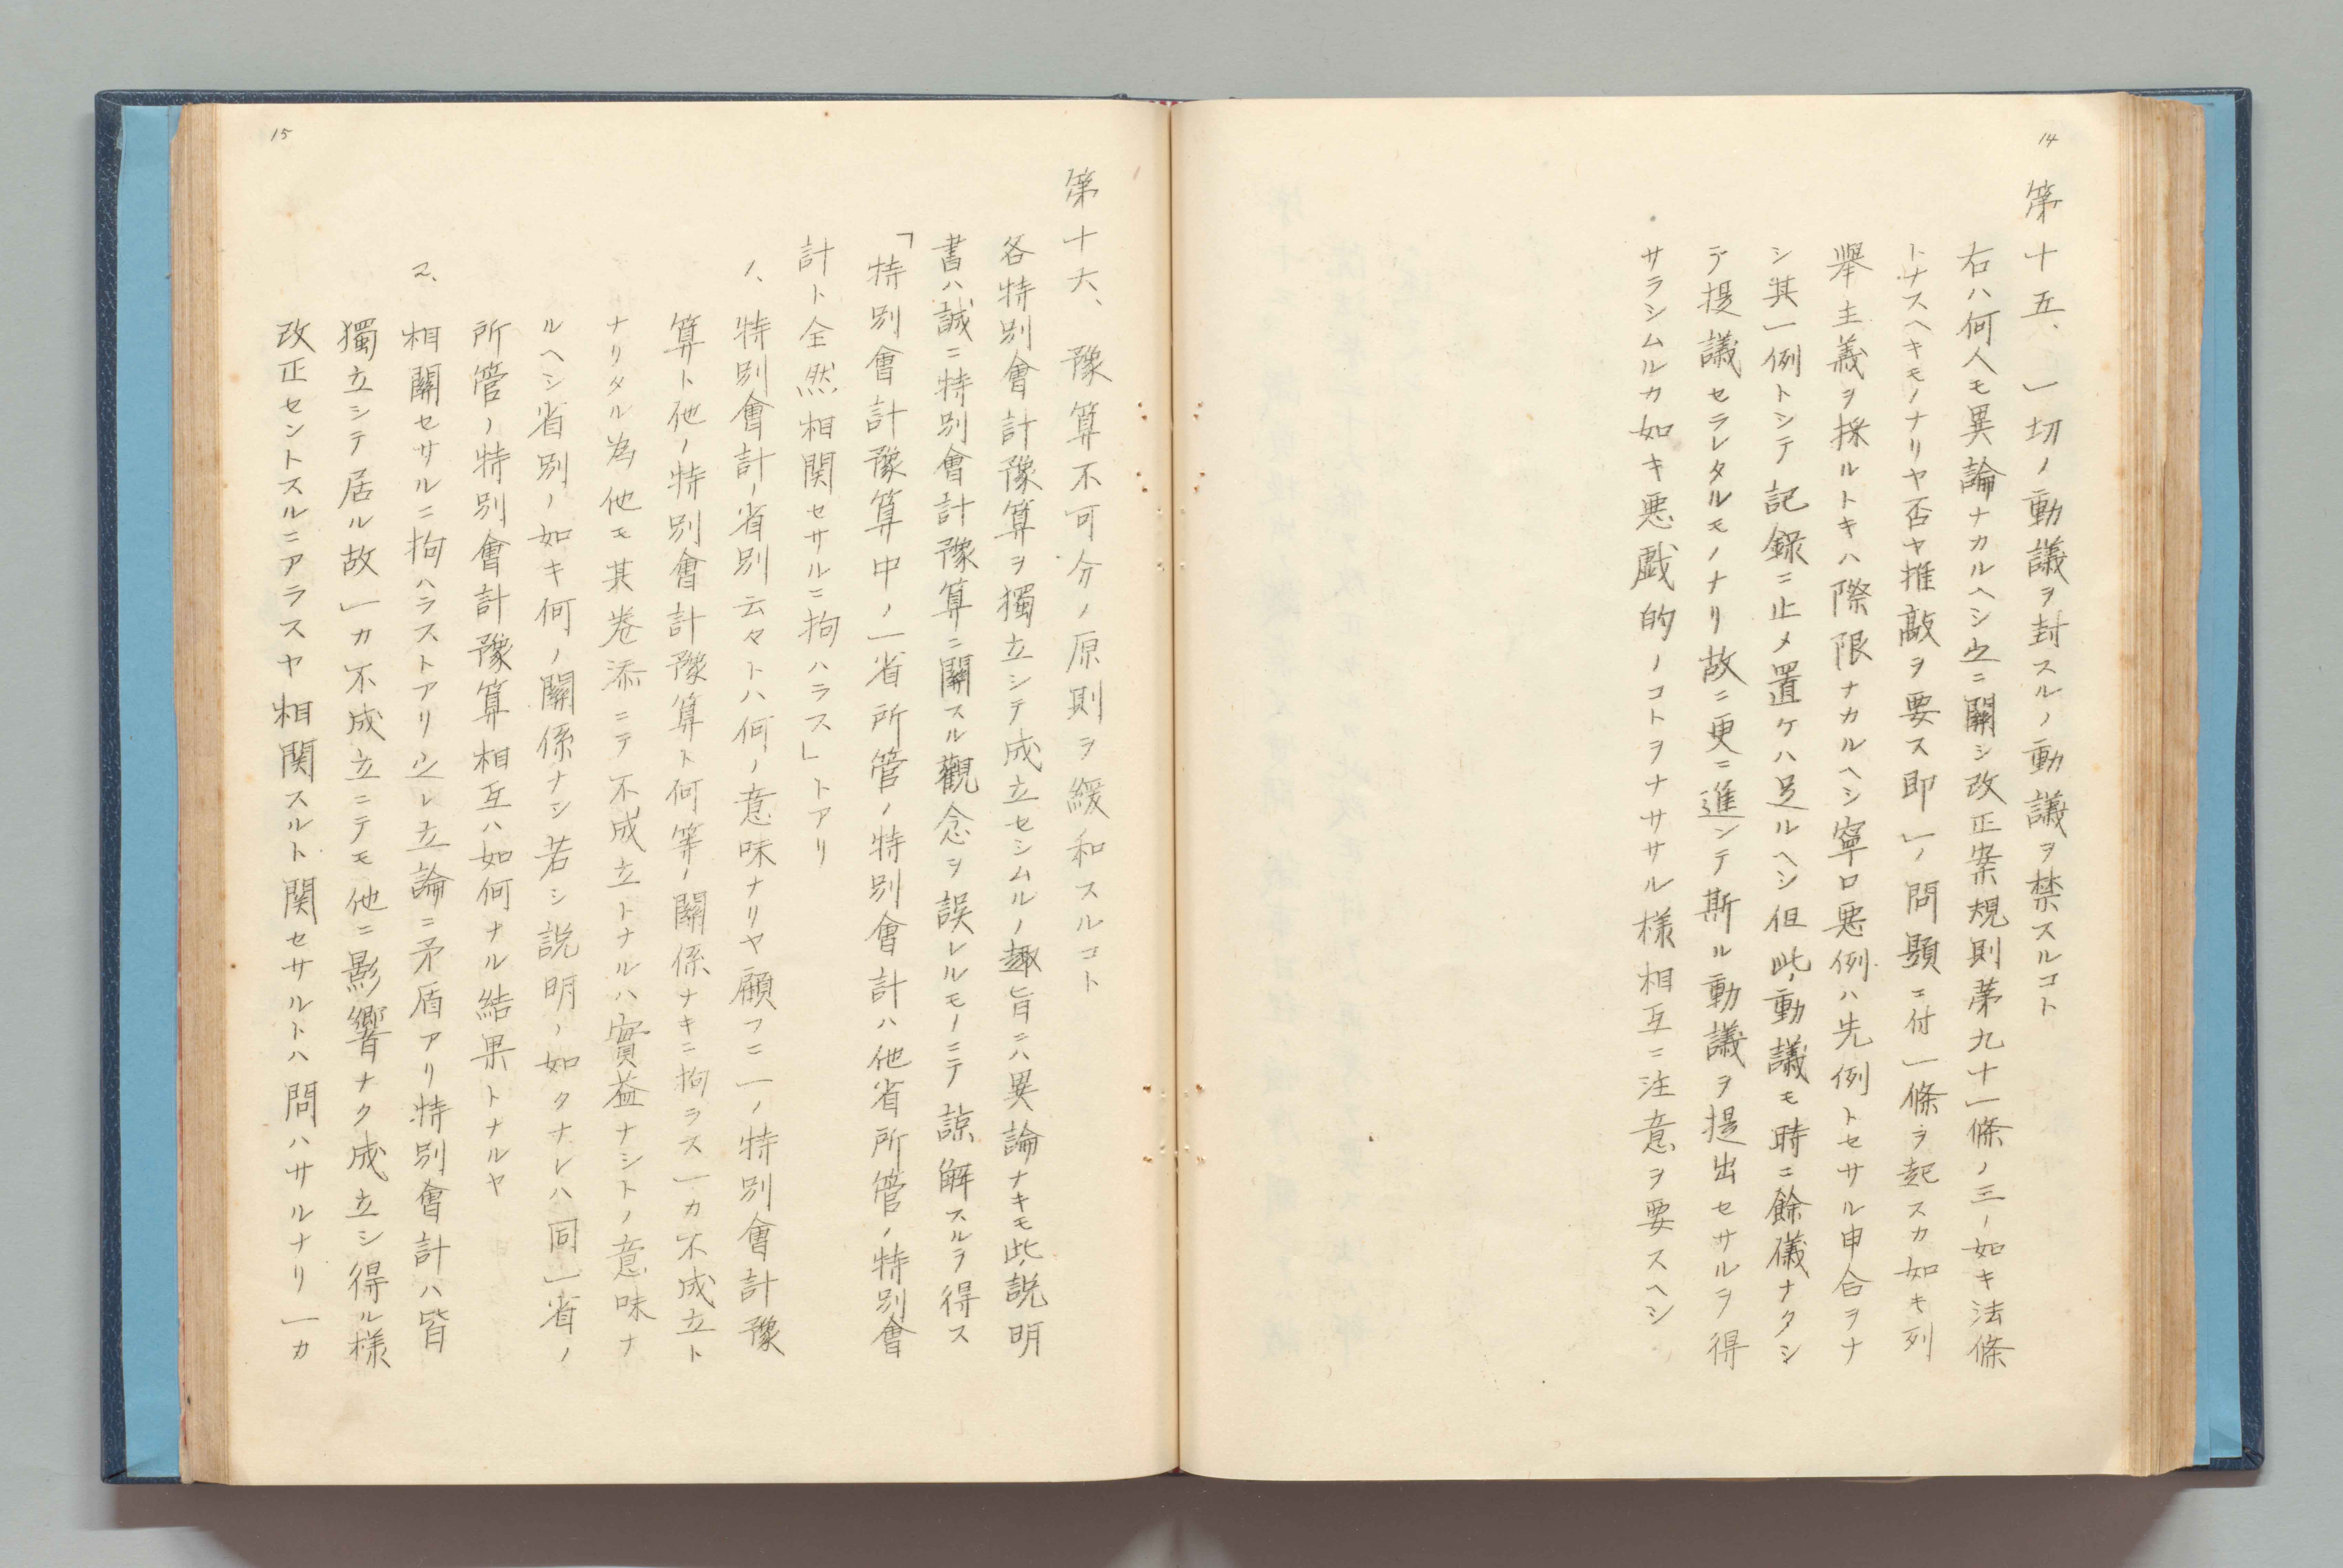 14
第十五、一切ノ動議ヲ封スルノ動議ヲ禁スルコト
右ハ何人モ異論ナカルヘシ之ニ關シ改正案規則第九十一條ノ三ノ如キ法條
トナスヘキモノナリヤ否ヤ推敲ヲ要ス即一ノ問題ニ付一條ヲ起スカ如キ列
擧主義ヲ採ルトキハ際限ナカルヘシ寧ロ悪例ハ先例トセサル申合ヲナ
シ其一例トシテ記録ニ止メ置ケハ足ルヘシ但此ノ動議モ時ニ餘儀ナクシ
テ提議セラレタルモノナリ故ニ更ニ進ンテ斯ル動議ヲ提出セサルヲ得
サラシムルカ如キ悪戯的ノコトヲナササル様相互ニ注意ヲ要スヘシ
15
第十六、豫算不可分ノ原則ヲ緩和スルコト
各特別會計豫算ヲ獨立シテ成立セシムルノ趣旨ニハ異論ナキモ此ノ説明
書ハ誠ニ特別會計豫算ニ關スル觀念ヲ誤レルモノニテ諒解スルヲ得ス
「特別會計豫算中ノ一省所管ノ特別會計ハ他省所管ノ特別會
計ト全然相関セサルニ拘ハラス」トアリ
1、特別會計ノ省別云々トハ何ノ意味ナリヤ顧フニ一ノ特別會計豫
算ト他ノ特別會計豫算ト何等ノ關係ナキニ拘ラス一カ不成立ト
ナリタル為他モ其巻添ニテ不成立トナルハ實益ナシトノ意味ナ
ルヘシ省別ノ如キ何ノ關係ナシ若シ説明ノ如クナレハ同一省ノ
所管ノ特別會計豫算相互ハ如何ナル結果トナルヤ
2、相關セサルニ拘ハラストアリ之レ立論ニ矛盾アリ特別會計ハ皆
獨立シテ居ル故一カ不成立ニテモ他ニ影響ナク成立シ得ル様
改正セントスルニアラスヤ相関スルト関セサルトハ問ハサルナリ一カ